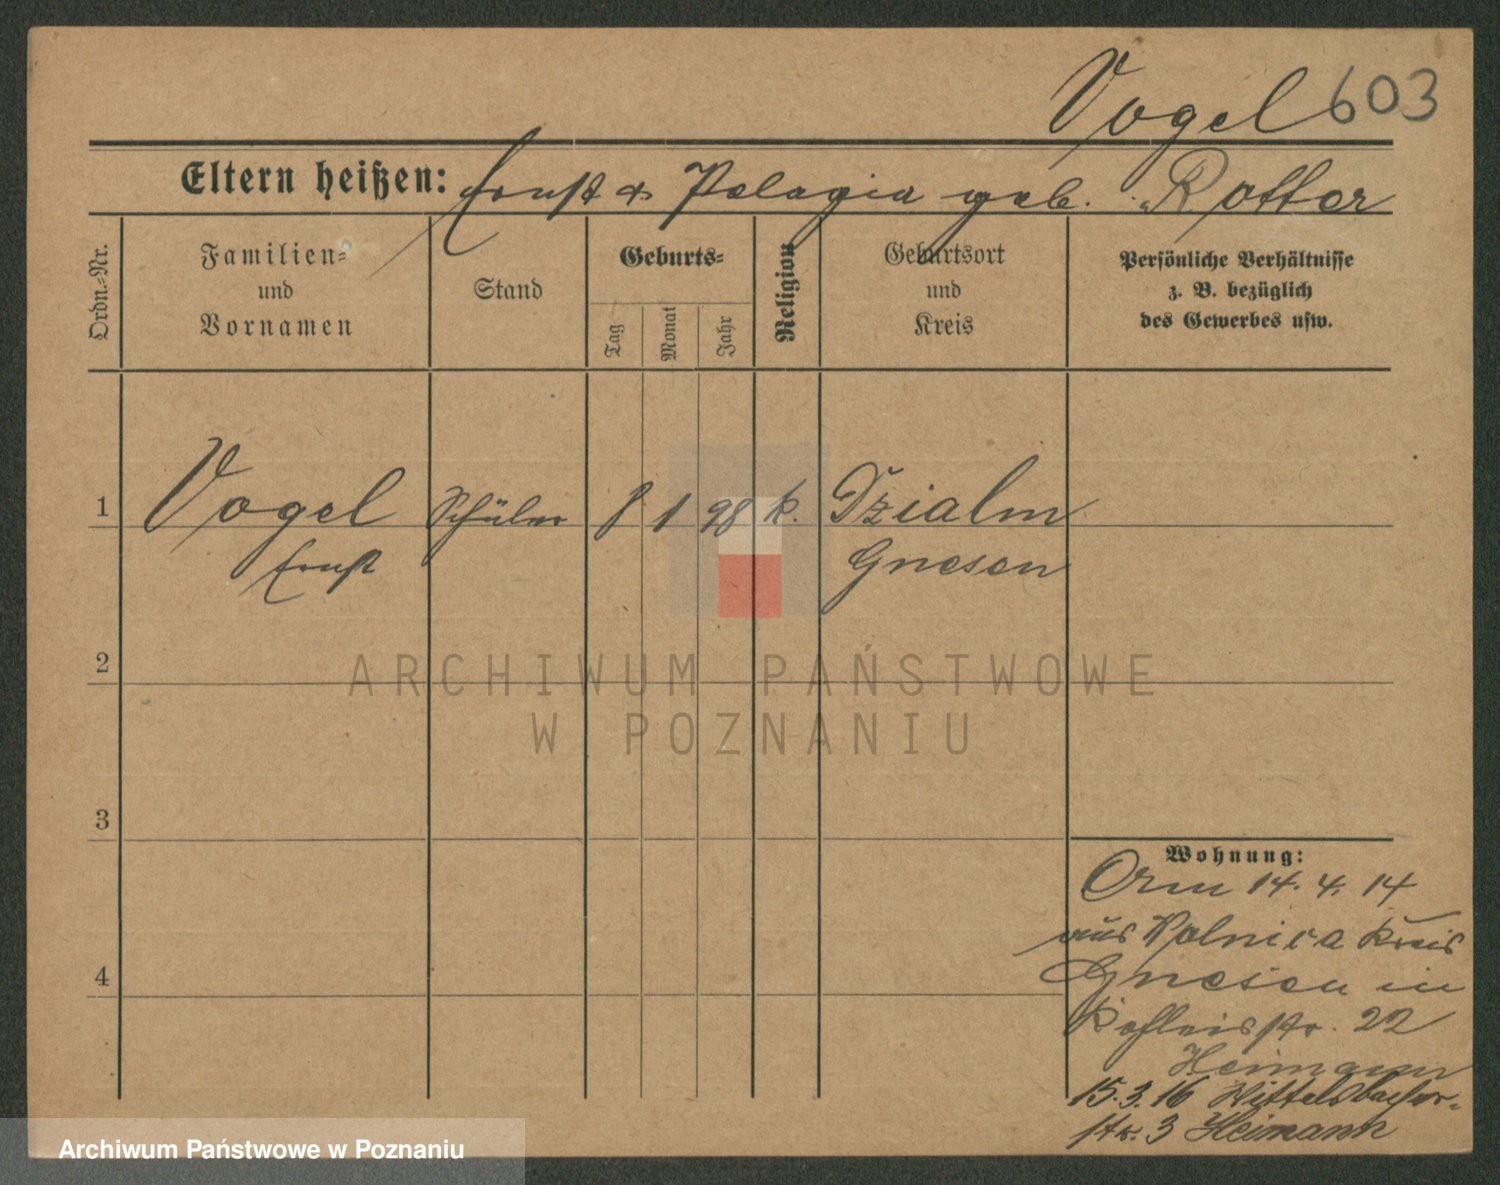 Vogel 603
Eltern heißen: Ernst & Pelagia geb. Rotter
Ordn.-Nr.
Familien-
und
Vornamen
Stand
Geburts-
Tag
Monat
Jahr
Religion
Geburtsort
und
Kreis
Persönliche Verhältnisse
z. B. bezüglich
des Gewerbes usw.
1 Vogel Schüler 8 1 98 k. Dzialm
Ernst Gnesen
2
3
4
Wohnung:
14. 4. 14
aus Polnica Kreis
Gnesen in
22
Heimann
15.3.16 Wittelsbacher-
str. 3 Heimann
ARCHIWUM PAŃSTWOWE
W POZNANIU
Archiwum Państwowe w Poznaniu